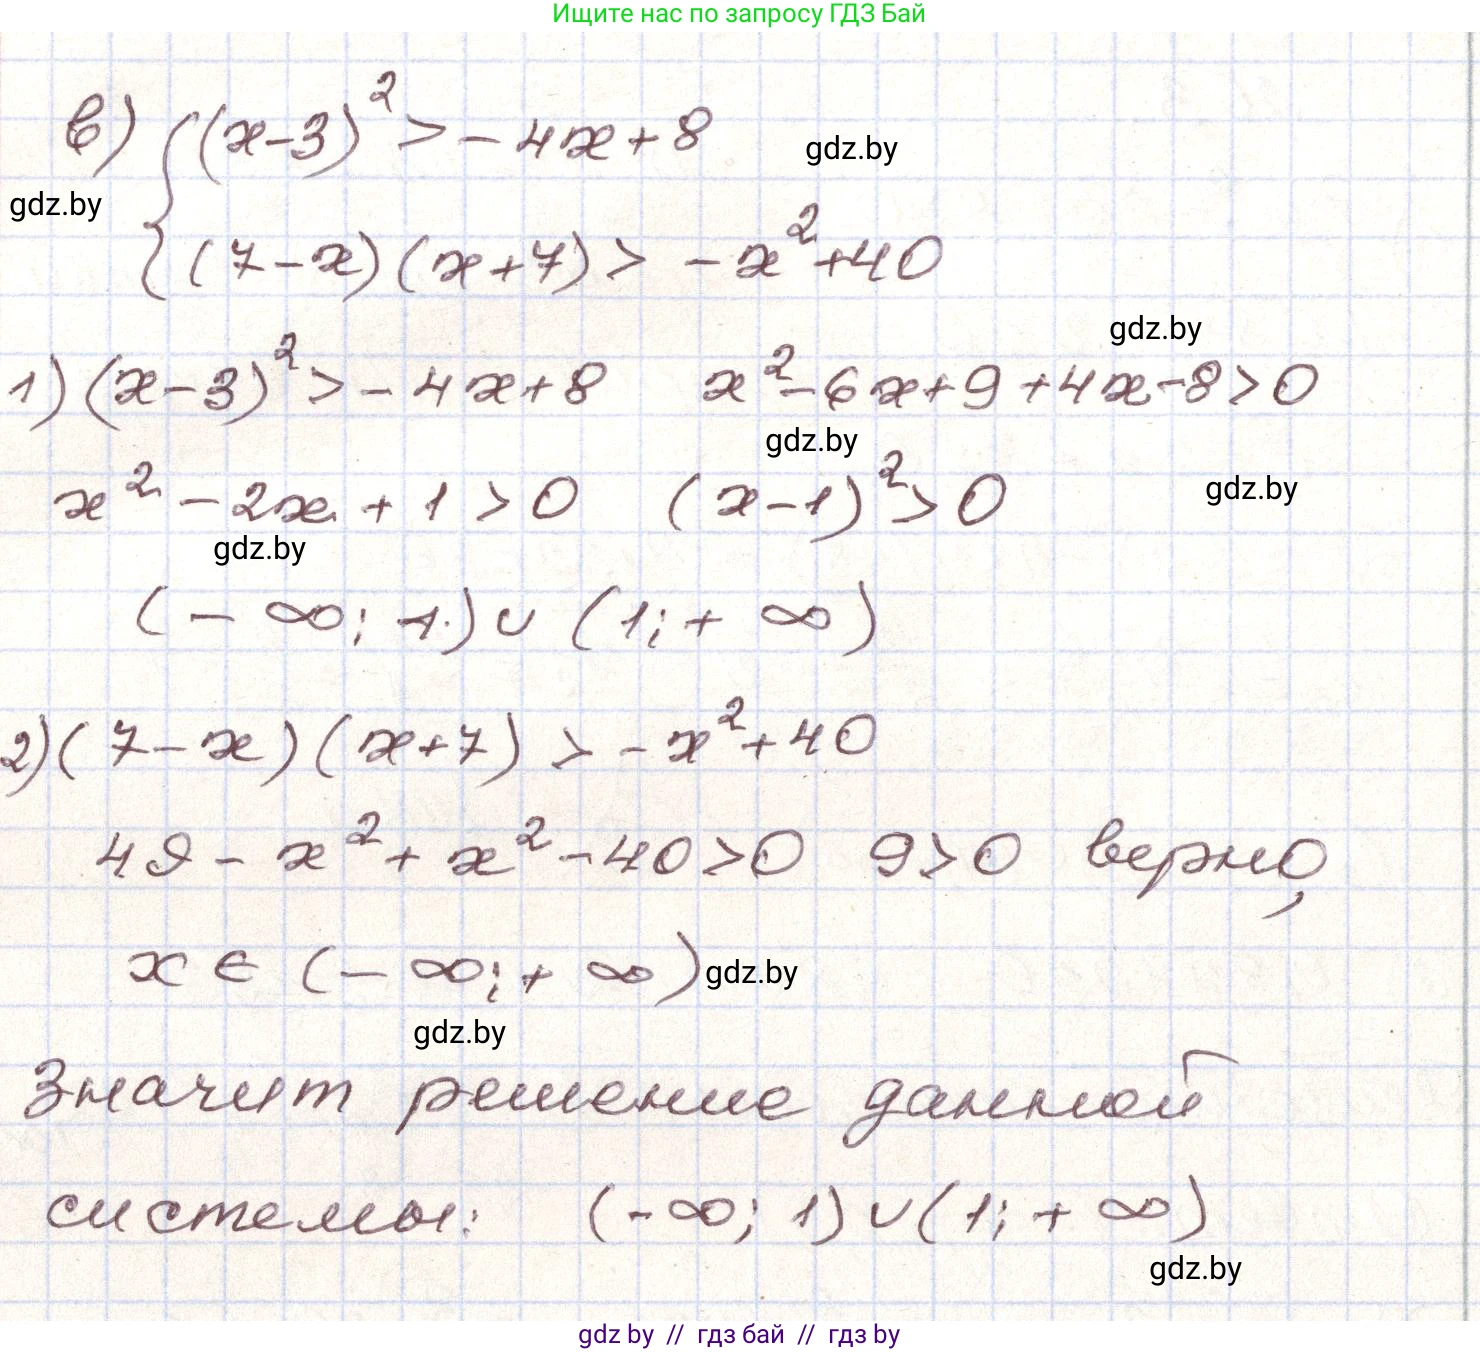 Ищите нас по запросу ГДЗ Бай
в) { (x-3)² > -4x+8
gdz.by
gdz.by
(7-x)(x+7) > -x²+40
gdz.by
1) (x-3)² > -4x+8 x²-6x+9+4x-8>0
gdz.by
x²-2x+1>0 (x-1)²>0
gdz.by
gdz.by
(-∞; 1) ∪ (1; +∞)
2) (7-x)(x+7) > -x²+40
49-x²+x²-40>0 9>0 верно,
x ∈ (-∞; +∞)
gdz.by
gdz.by
Значит решение данной
системы: (-∞; 1) ∪ (1; +∞)
gdz.by
gdz by // гдз бай // гдз by